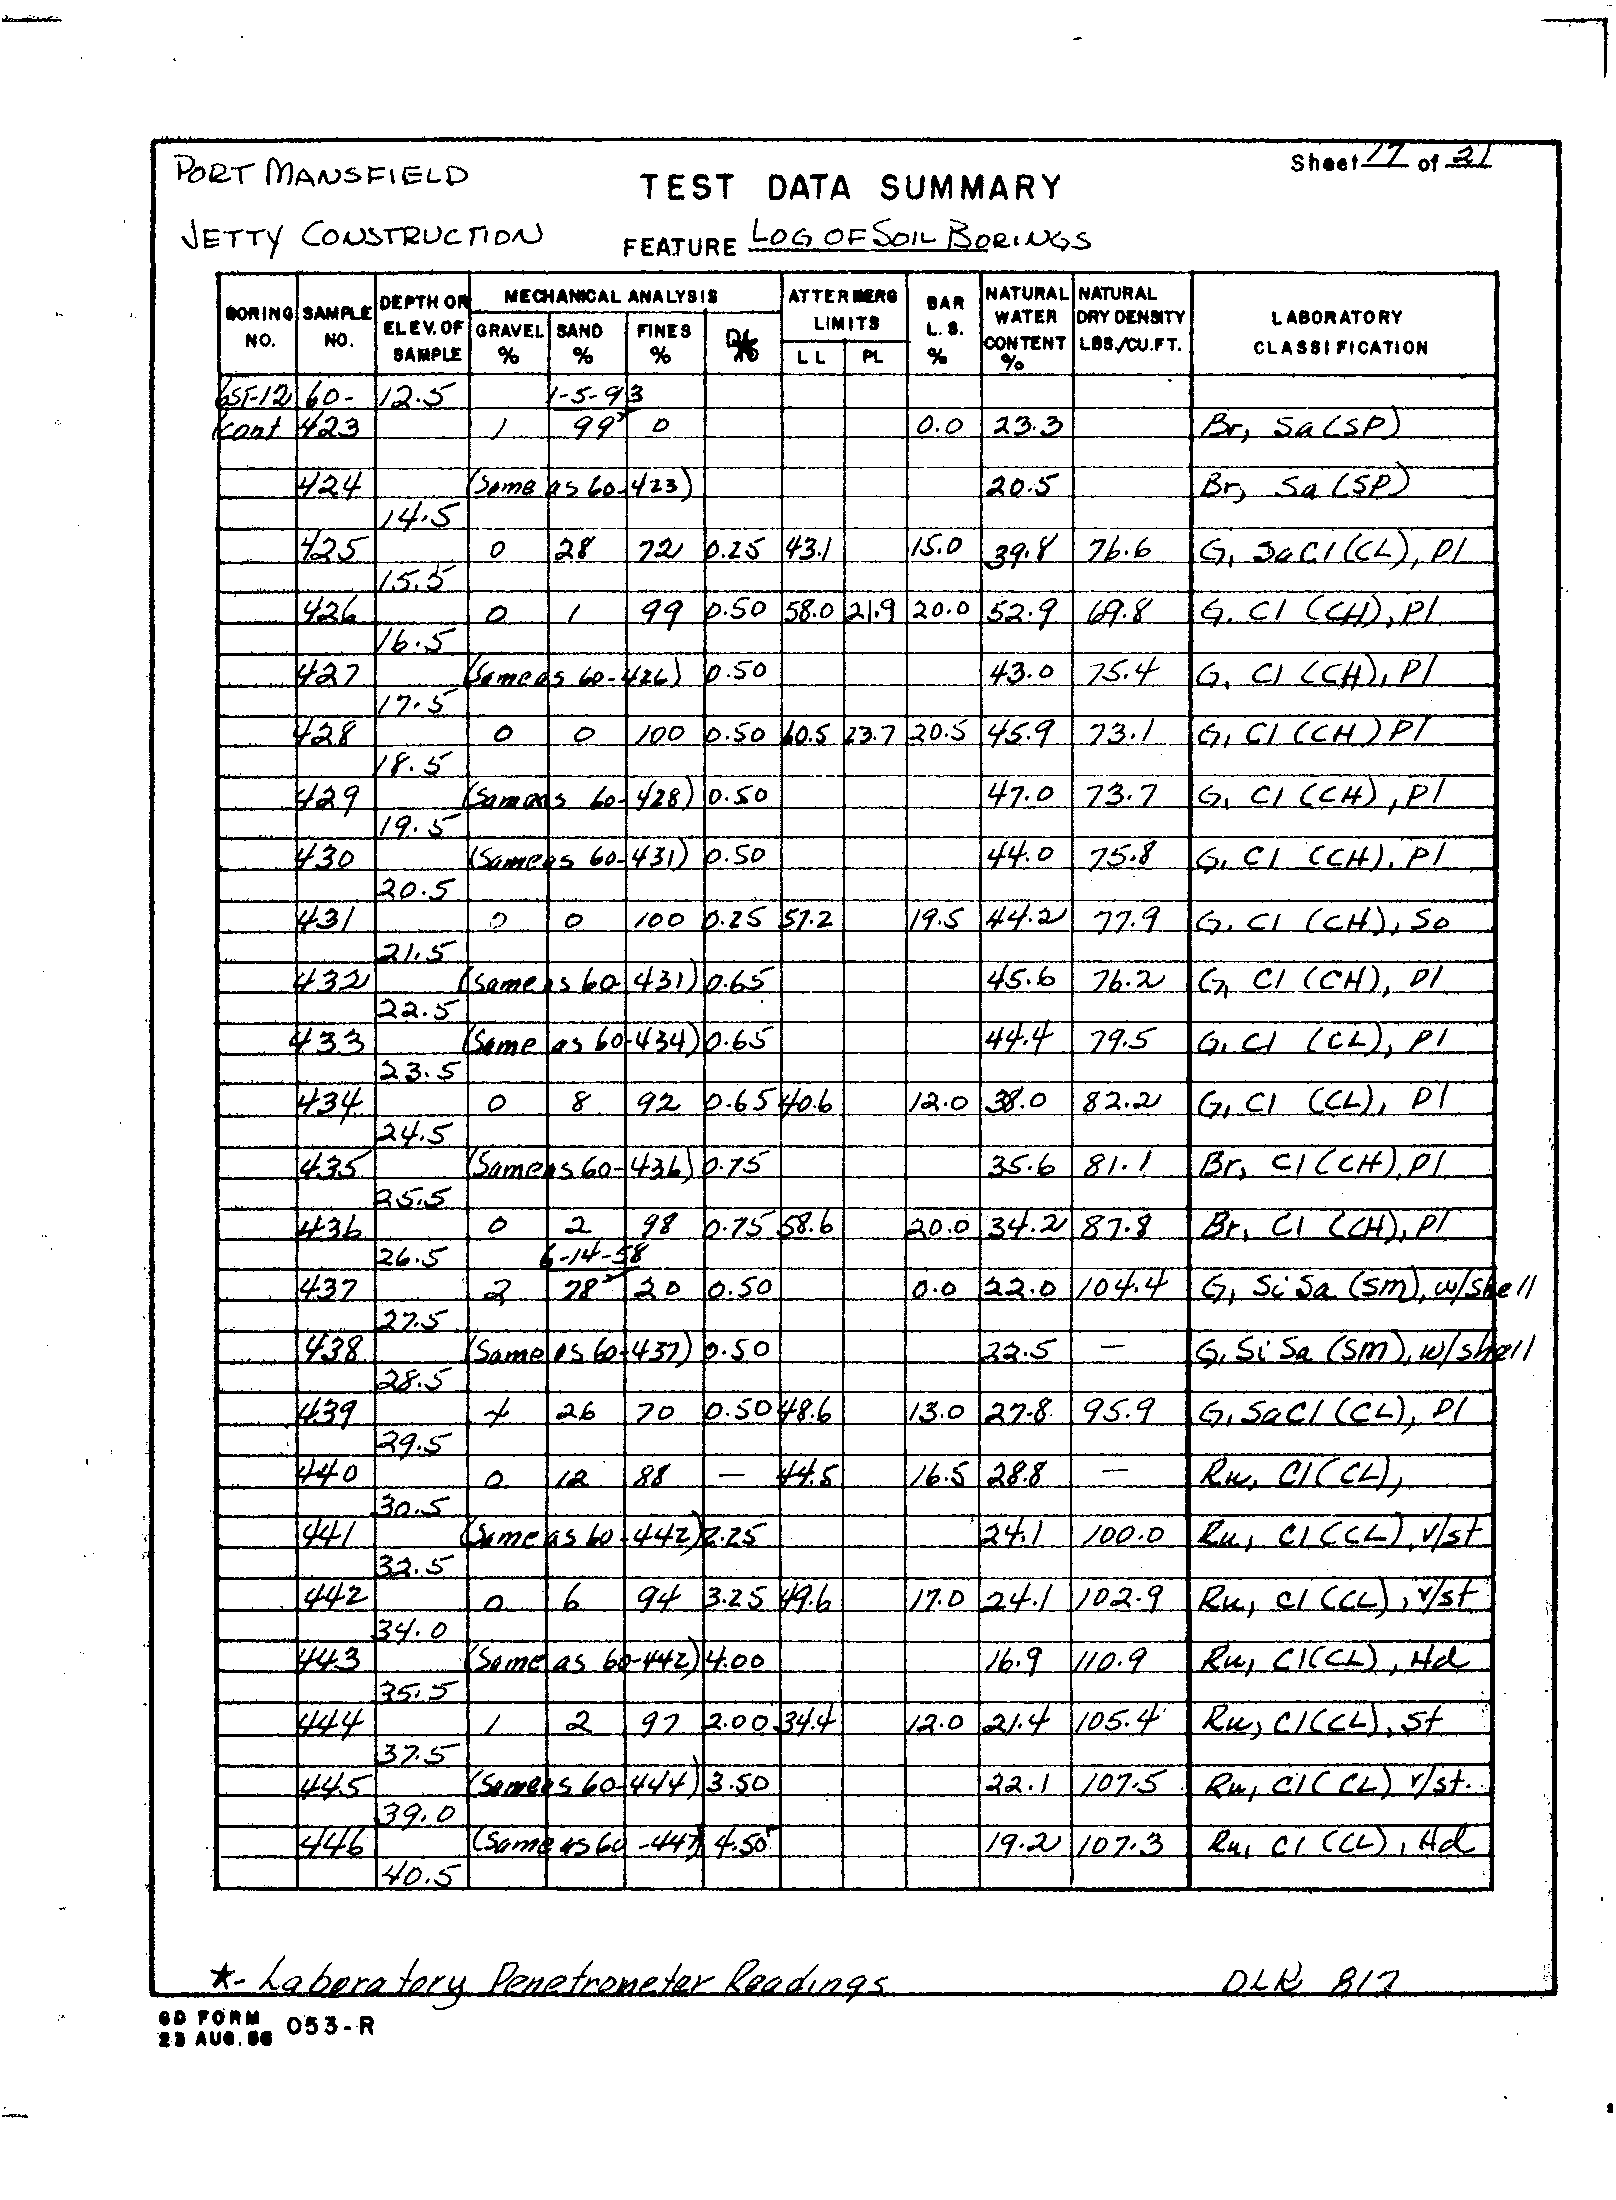 PORT MANSFIELD
Sheet 17 of 31
TEST DATA SUMMARY
JETTY CONSTRUCTION
FEATURE LOG OF SOIL BORINGS
BORING NO. SAMPLE NO. DEPTH OR ELEV. OF SAMPLE MECHANICAL ANALYSIS GRAVEL % SAND % FINES % ATTERBERG LIMITS LL PL BAR L.S. % NATURAL WATER CONTENT % NATURAL DRY DENSITY LBS./CU.FT. LABORATORY CLASSIFICATION
6ST-12 60- 12.5 1-5-93
cont 423 1 99 0 0.0 23.3 Br, Sa (SP)
424 (Same as 60-423) 20.5 Br, Sa (SP)
14.5
425 0 28 72 0.25 43.1 15.0 39.8 76.6 G, SaCl (CL), Pl
15.5
426 0 1 99 0.50 58.0 21.9 20.0 52.9 69.8 G. Cl (CH), Pl
16.5
427 (Same as 60-426) 0.50 43.0 75.4 G, Cl (CH), Pl
17.5
428 0 0 100 0.50 60.5 23.7 20.5 45.9 73.1 G, Cl (CH) Pl
18.5
429 (Same as 60-428) 0.50 47.0 73.7 G, Cl (CH), Pl
19.5
430 (Same as 60-431) 0.50 44.0 75.8 G, Cl (CH), Pl
20.5
431 0 0 100 0.25 57.2 19.5 44.2 77.9 G. Cl (CH), So
21.5
432 (Same as 60-431) 0.65 45.6 76.2 G, Cl (CH), Pl
22.5
433 (Same as 60-434) 0.65 44.4 79.5 G. Cl (CL), Pl
23.5
434 0 8 92 0.65 40.6 12.0 38.0 82.2 G, Cl (CL), Pl
24.5
435 (Same as 60-436) 0.75 35.6 81.1 Br, Cl (CH), Pl
25.5
436 0 2 98 0.75 58.6 20.0 34.2 87.8 Br, Cl (CH), Pl
26.5 6-14-58
437 2 78 20 0.50 0.0 22.0 104.4 G, Si Sa (SM), w/shell
27.5
438 (Same as 60-437) 0.50 22.5 — G, Si Sa (SM), w/shell
28.5
439 4 26 70 0.50 48.6 13.0 27.8 95.9 G, SaCl (CL), Pl
29.5
440 0 12 88 — 44.5 16.5 28.8 — Ru, Cl (CL),
30.5
441 (Same as 60-442) 2.25 24.1 100.0 Ru, Cl (CL), v/st
32.5
442 0 6 94 3.25 49.6 17.0 24.1 102.9 Ru, Cl (CL), v/st
34.0
443 (Same as 60-442) 4.00 16.9 110.9 Ru, Cl (CL), Hd
35.5
444 1 2 97 2.00 34.4 12.0 21.4 105.4 Ru, Cl (CL), St
37.5
445 (Same as 60-444) 3.50 22.1 107.5 Ru, Cl (CL) v/st.
39.0
446 (Same as 60-447) 4.50 19.2 107.3 Ru, Cl (CL), Hd
40.5
*- Laboratory Penetrometer Readings
DLR 817
GD FORM 053-R
23 AUG. 56